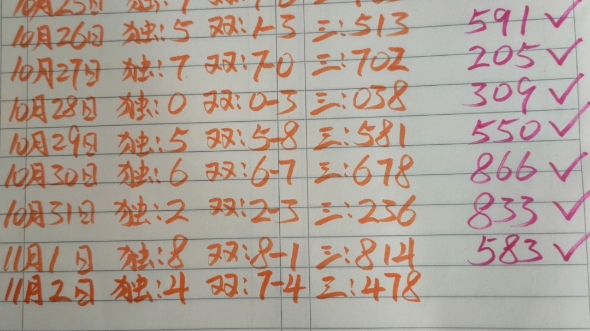 10月25日 独:
10月26日 独:5 双:1-3 三:513 591✓
10月27日 独:7 双:7-0 三:702 205✓
10月28日 独:0 双:0-3 三:038 309✓
10月29日 独:5 双:5-8 三:581 550✓
10月30日 独:6 双:6-7 三:678 866✓
10月31日 独:2 双:2-3 三:236 833✓
11月1日 独:8 双:8-1 三:814 583✓
11月2日 独:4 双:7-4 三:478